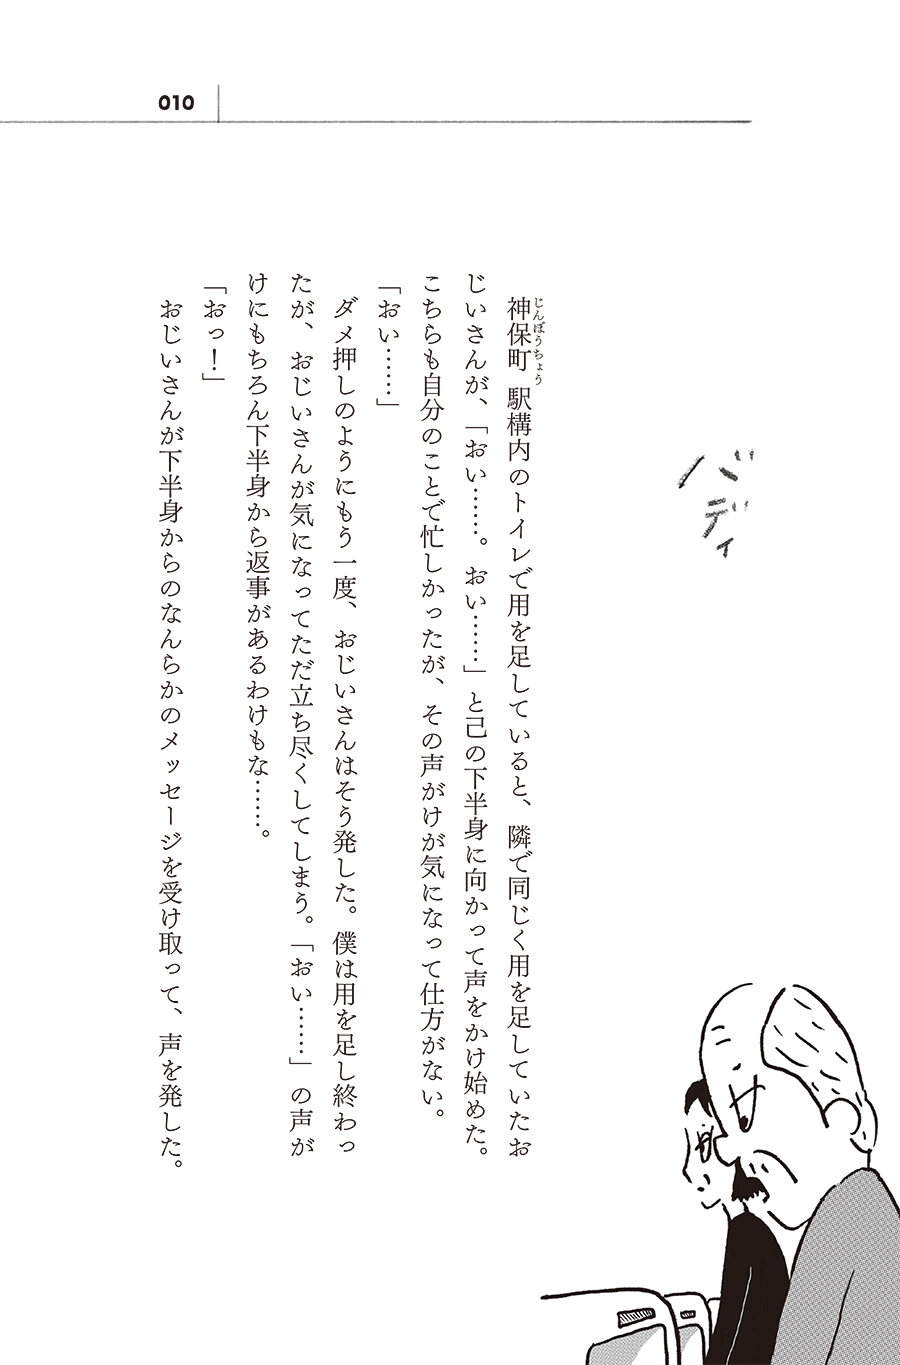 010
バディ
神保町駅構内のトイレで用を足していると、隣で同じく用を足していたお
じんぼうちょう
じいさんが、「おい……。おい……」と己の下半身に向かって声をかけ始めた。
こちらも自分のことで忙しかったが、その声がけが気になって仕方がない。
「おい……」
ダメ押しのようにもう一度、おじいさんはそう発した。僕は用を足し終わっ
たが、おじいさんが気になってただ立ち尽くしてしまう。「おい……」の声が
けにもちろん下半身から返事があるわけもな……。
「おっ！」
おじいさんが下半身からのなんらかのメッセージを受け取って、声を発した。